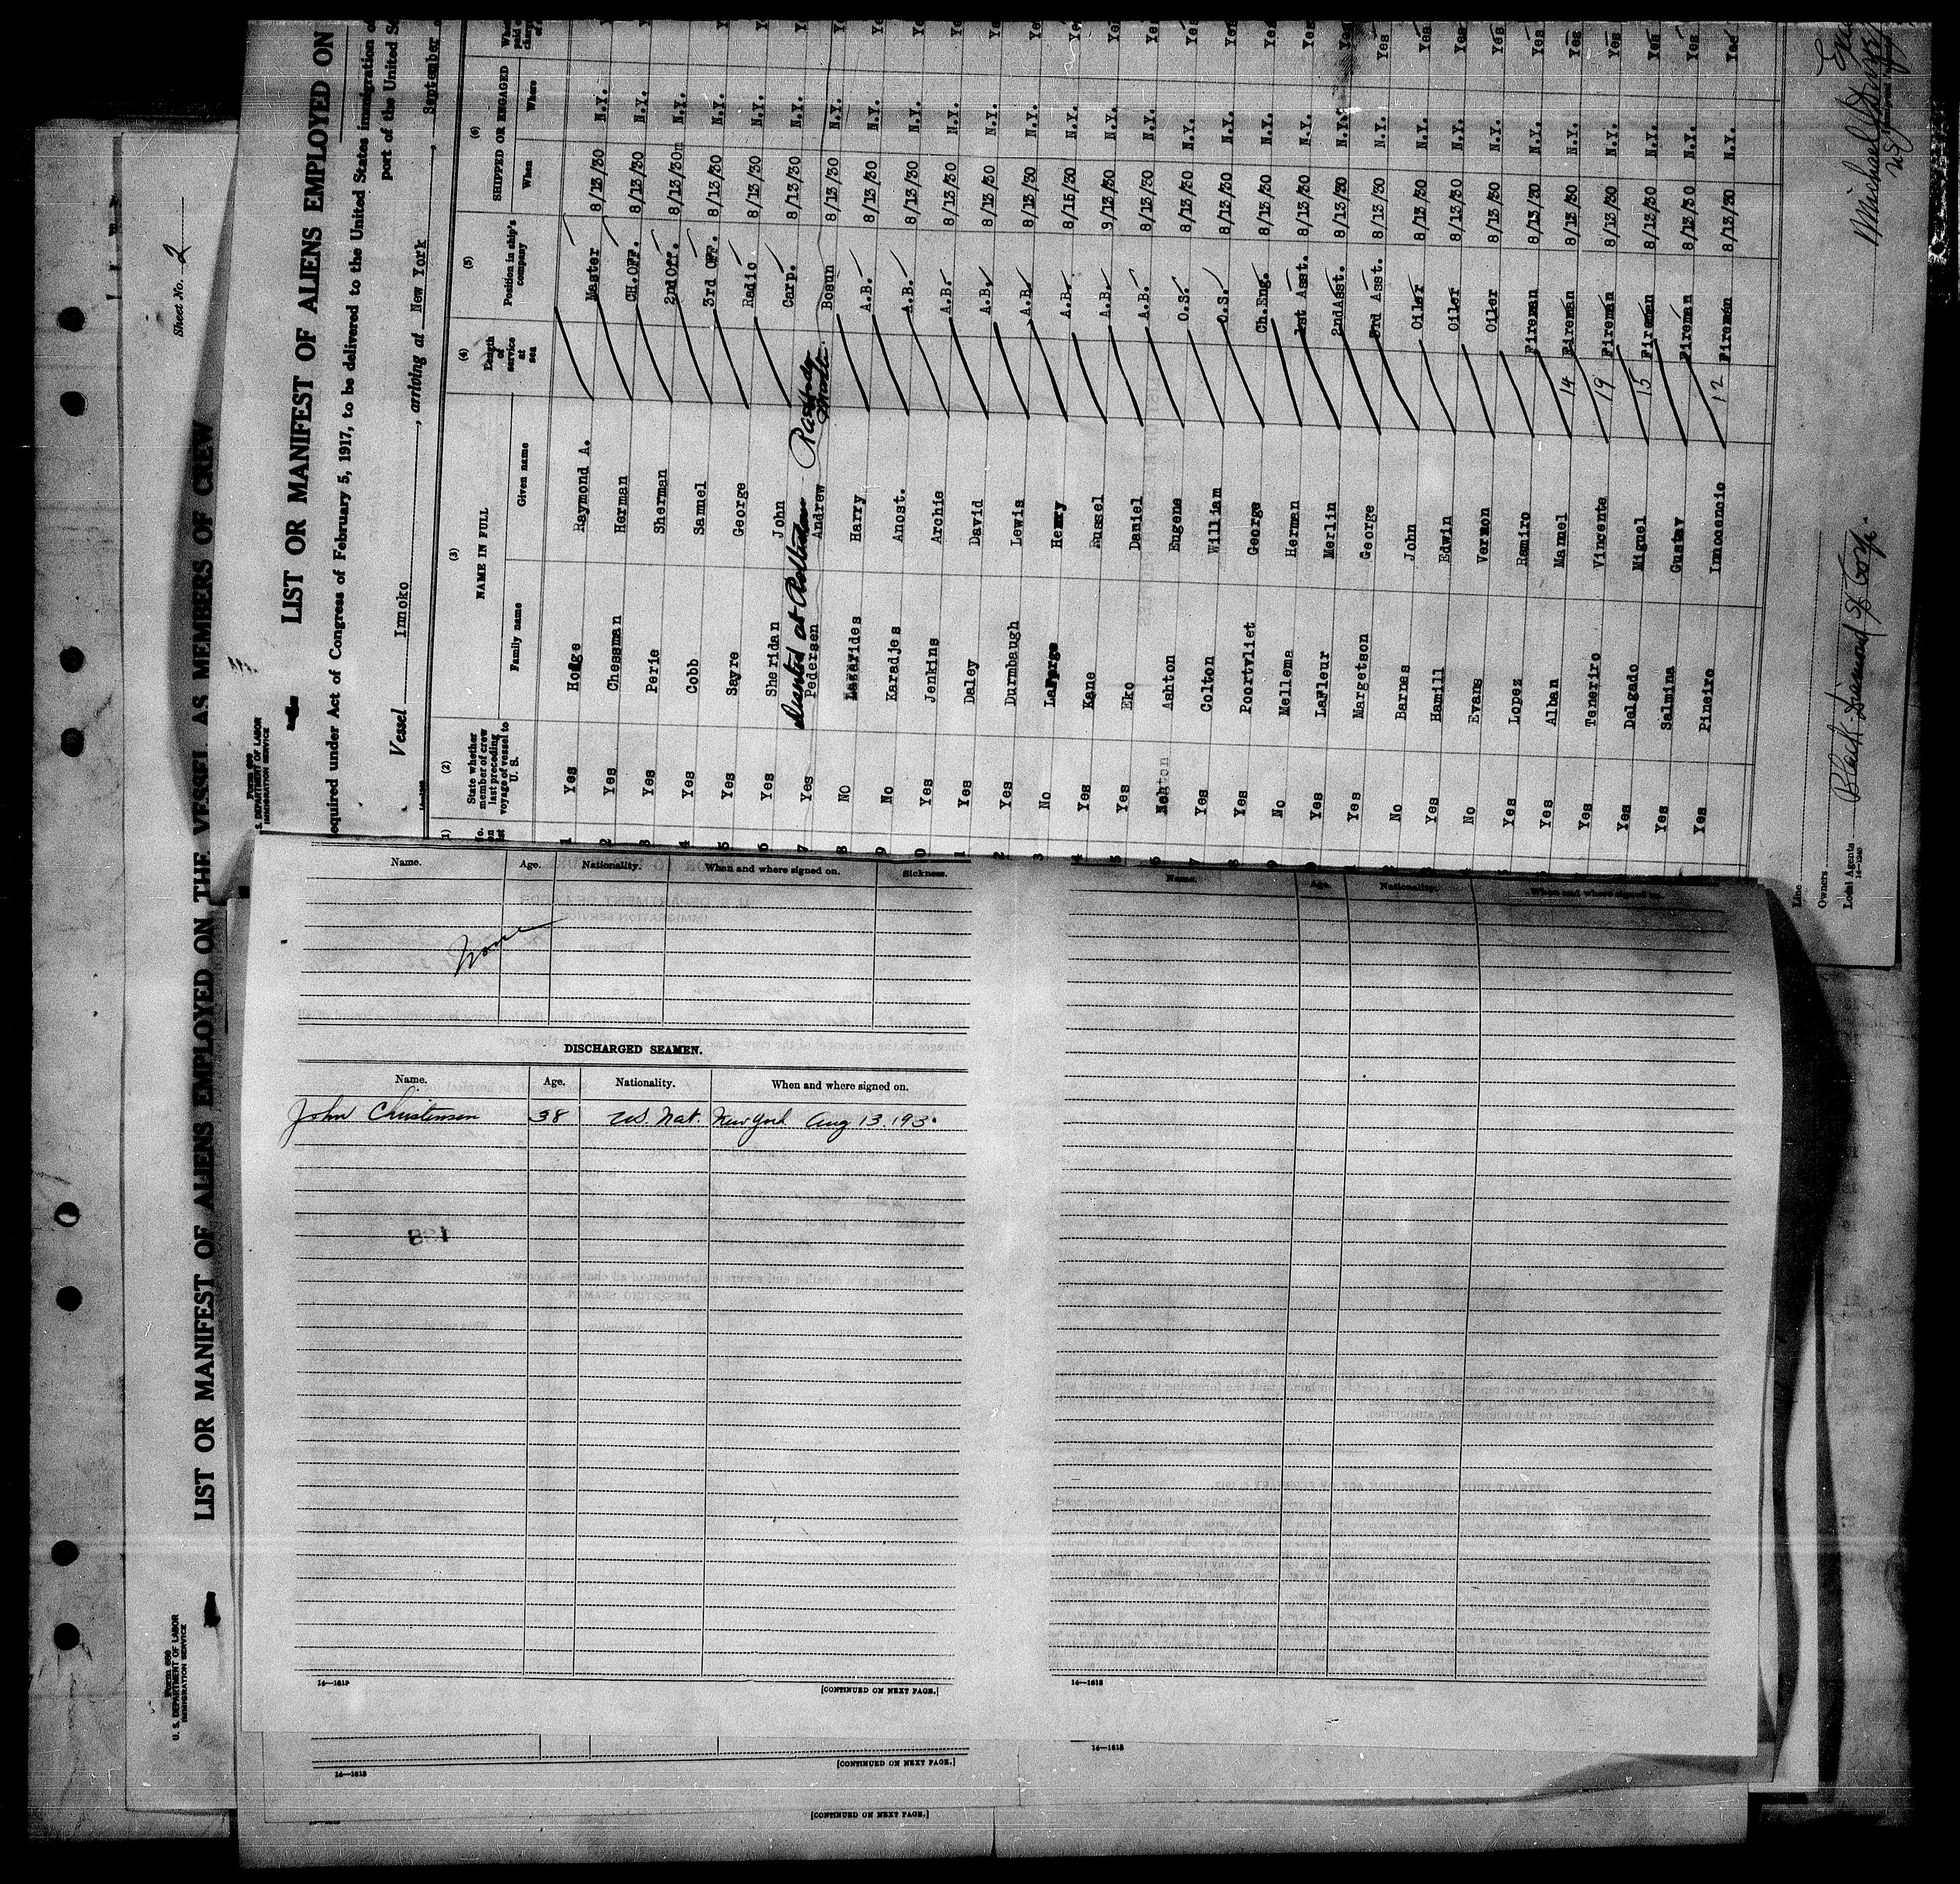 Sheet No. 2
LIST OR MANIFEST OF ALIENS EMPLOYED ON
equired under Act of Congress of February 5, 1917, to be delivered to the United States immigration
port of the United
Vessel Innoko , arriving at New York , September
Form 699
S. DEPARTMENT OF LABOR
IMMIGRATION SERVICE
(1) (2) (3) (4) (5) (6)
State whether member of crew last preceding voyage of vessel to U. S.
NAME IN FULL
Family name Given name
Length of service at sea
Position in ship's company
SHIPPED OR ENGAGED
When Where
1 Yes Hodge Raymond A. Master 8/13/30 N.Y.
2 Yes Chessman Herman CH.OFF. 8/13/30 N.Y.
3 Yes Perie Sherman 2nd Off. 8/13/30 N.Y.
4 Yes Cobb Samuel 3rd OFF. 8/13/30 N.Y.
5 Yes Sayre George Radio 8/13/30 N.Y.
6 Yes Sheridan John Carp. 8/13/30 N.Y.
7 Yes Pedersen Andrew Bosun 8/13/30 N.Y.
8 NO Lazarides Harry A.B. 8/13/30 N.Y.
9 No Karadjes Anost. A.B. 8/13/30 N.Y.
0 Yes Jenkins Archie A.B. 8/13/30 N.Y.
1 Yes Daley David A.B. 8/13/30 N.Y.
2 Yes Durmbaugh Lewis A.B. 8/13/30 N.Y.
3 No LaForge Henry A.B. 8/15/30 N.Y.
4 Yes Kane Russel A.B. 9/13/30 N.Y.
5 Yes Eko Daniel A.B. 8/13/30 N.Y.
6 Ashton Eugene O.S. 8/13/30 N.Y.
7 Yes Colton William O.S. 8/13/30 N.Y.
8 Yes Poortvliet George Ch.Eng. 8/13/30 N.Y.
9 No Mellema Herman 1st Asst. 8/13/30 N.Y.
Yes LaFleur Merlin 2nd Asst. 8/13/30 N.Y.
Yes Margetson George 3rd Asst. 8/13/30 N.Y.
No Barnes John Oiler 8/13/30 N.Y.
Yes Hamill Edwin Oiler 8/13/30 N.Y.
No Evans Vermon Oiler 8/13/30 N.Y.
Yes Lopez Ramiro Fireman 8/13/30 N.Y.
Yes Alban Mamuel 14 Fireman 8/13/30 N.Y. Yes
Yes Teneriro Vincente 19 Fireman 8/13/30 N.Y. Yes
Yes Delgado Miguel 15 Fireman 8/13/30 N.Y. Yes
Yes Salmina Gustav Fireman 8/13/30 N.Y. Yes
Yes Pineiro Innocencio 12 Fireman 8/13/30 N.Y.
Line
Owners
Local Agents Black Diamond SS Corp.
14-1240
Michael
LIST OR MANIFEST OF ALIENS EMPLOYED ON THE VESSEL AS MEMBERS OF CREW
Form 699
U. S. DEPARTMENT OF LABOR
IMMIGRATION SERVICE
Name. Age. Nationality. When and where signed on. Sickness.
None
DISCHARGED SEAMEN.
Name. Age. Nationality. When and where signed on.
John Christensen 38 US. Nat. New York Aug 13. 1930
14—1613 [CONTINUED ON NEXT PAGE.]
Name. Age. Nationality. When and where signed on.
14—1613
14—1613 [CONTINUED ON NEXT PAGE.]
14—1613
[CONTINUED ON NEXT PAGE.]